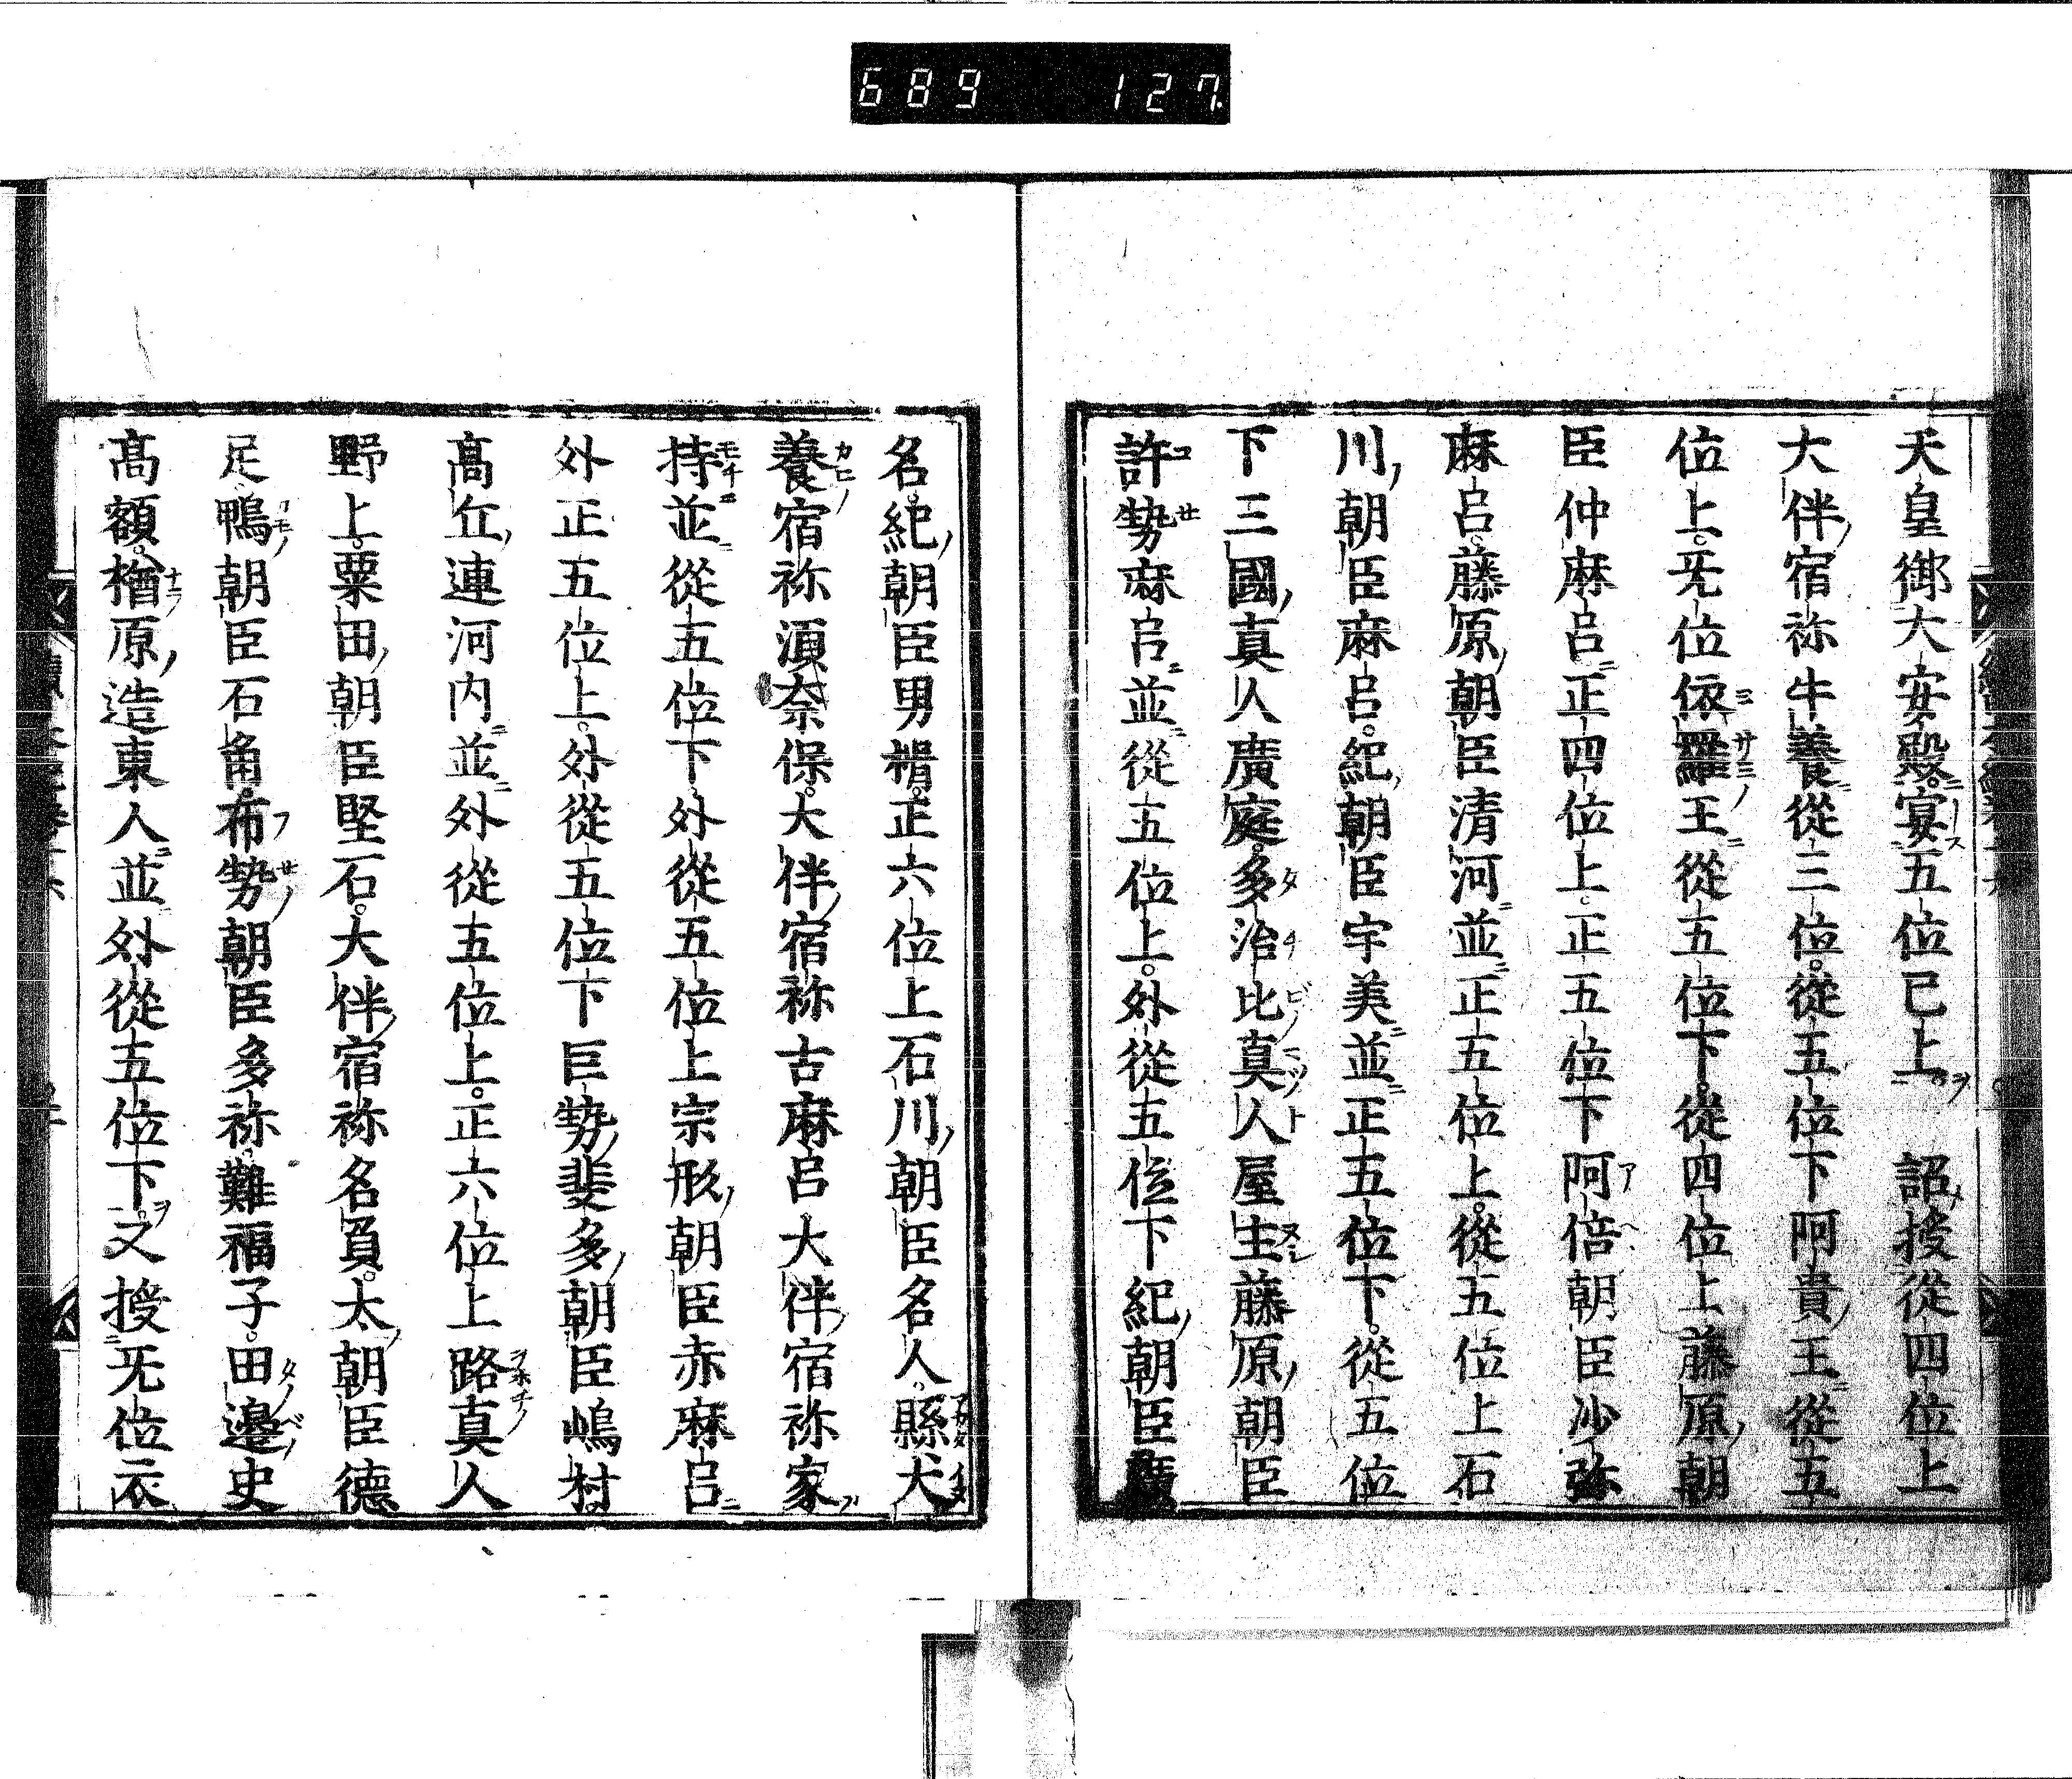 689 127
天皇御大安殿宴五位已上 詔授從四位上
大伴宿祢牛養從三位從五位下阿貴王從五
位上无位依羅王從五位下從四位上藤原朝
臣仲麻呂正四位上正五位下阿倍朝臣沙弥
麻呂藤原朝臣清河並正五位上從五位上石
川朝臣麻呂紀朝臣宇美並正五位下從五位
下三國真人廣庭多治比真人屋主藤原朝臣
許勢麻呂並從五位上外從五位下紀朝臣廣
名紀朝臣男楫正六位上石川朝臣名人縣犬
養宿祢湏奈保大伴宿祢古麻呂大伴宿祢家
持並從五位下外從五位上宗形朝臣赤麻呂
外正五位上外從五位下巨勢斐多朝臣嶋村
髙丘連河内並外從五位上正六位上路真人
野上粟田朝臣堅石大伴宿祢名負太朝臣德
足鴨朝臣石角布勢朝臣多祢難福子田邊史
髙額楢原造東人並外從五位下又授无位衣